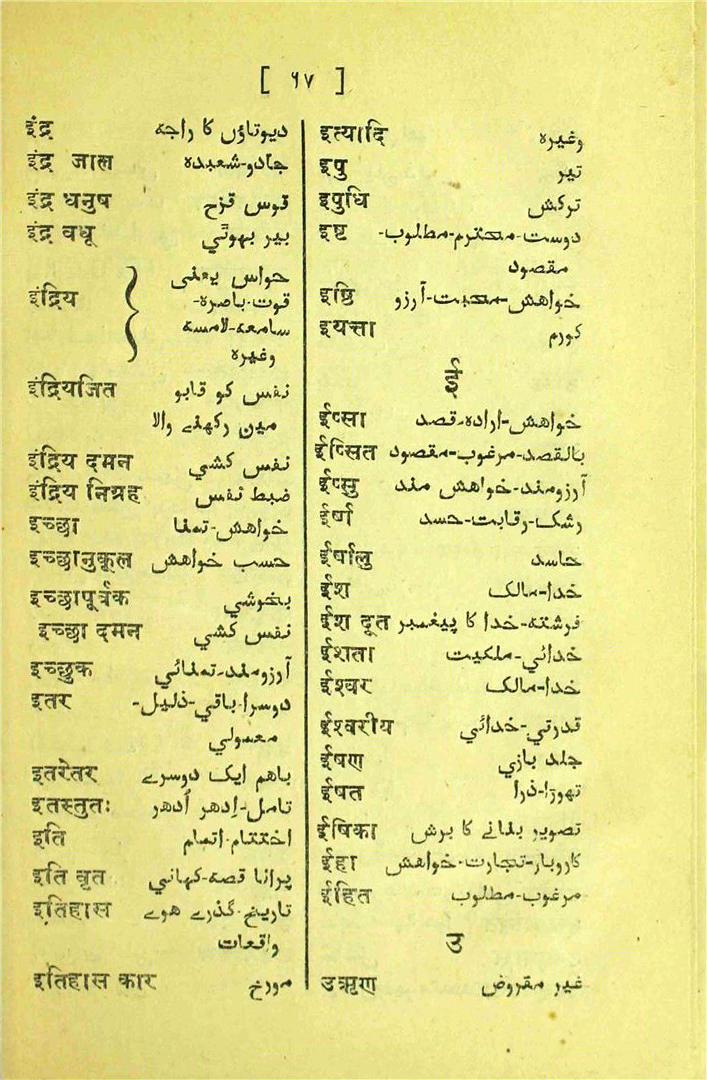 [ ٩٧ ]
इंद्र دیوتاؤں کا راجہ
इंद्र जाल جادو-شعبدہ
इंद्र धनुष قوس قزح
इंद्र वधू بیر بھوٹی
इंद्रिय حواس یعنی
قوت باصرہ-
سامعہ-لامسہ
وغیرہ
इंद्रियजित نفس کو قابو
میں رکھنے والا
इंद्रिय दमन نفس کشی
इंद्रिय निग्रह ضبط نفس
इच्छा خواهش-تمنا
इच्छानुकूल حسب خواهش
इच्छापूर्वक بخوشی
इच्छा दमन نفس کشی
इच्छुक آرزومند-تمنائی
इतर دوسرا-باقی-ذلیل-
معمولی
इतरेतर باهم ایک دوسرے
इतस्तुतः تامل-اِدهر اُدهر
इति اختتام-اتمام
इति वृत پرانا قصہ-کہانی
इतिहास تاریخ-گذرے هوے
واقعات
इतिहास कार مورخ
इत्यादि وغیرہ
इषु تیر
इषुधि ترکش
इष्ट دوست-محترم-مطلوب-
مقصود
इष्ठि خواهش-محبت-آرزو
इयत्ता کورم
ई
ईप्सा خواهش-ارادہ-قصد
ईप्सित بالقصد-مرغوب-مقصود
ईप्सु آرزومند-خواهش مند
ईर्षा رشک-رقابت-حسد
ईर्षालु حاسد
ईश خدا-مالک
ईश दूत فرشتہ-خدا کا پیغمبر
ईशता خدائی-ملکیت
ईश्वर خدا-مالک
ईश्वरीय قدرتی-خدائی
ईषण جلد بازی
ईषत تھوڑا-ذرا
ईषिका تصویر بنانے کا برش
ईहा کاروبار-تجارت-خواهش
ईहित مرغوب-مطلوب
उ
उऋण غیر مقروض